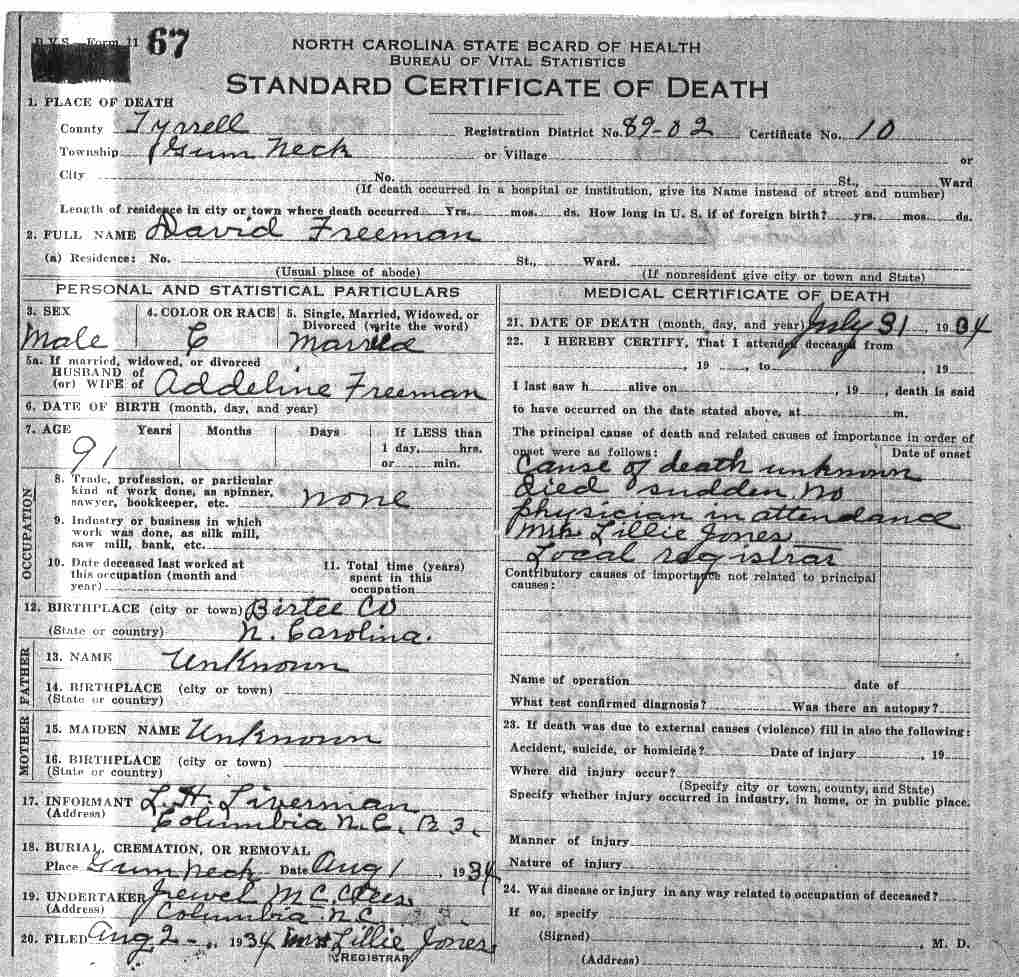 B.V.S. Form 11 67
NORTH CAROLINA STATE BOARD OF HEALTH
BUREAU OF VITAL STATISTICS
STANDARD CERTIFICATE OF DEATH
1. PLACE OF DEATH
County Tyrrell Registration District No. 89-02 Certificate No. 10
Township Gum Neck or Village or
City No. St., Ward
(If death occurred in a hospital or institution, give its Name instead of street and number)
Length of residence in city or town where death occurred Yrs. mos. ds. How long in U. S. if of foreign birth? yrs. mos. ds.
2. FULL NAME David Freeman
(a) Residence: No. St., Ward.
(Usual place of abode) (If nonresident give city or town and State)
PERSONAL AND STATISTICAL PARTICULARS
3. SEX 4. COLOR OR RACE 5. Single, Married, Widowed, or
Divorced (write the word)
Male C Married
5a. If married, widowed, or divorced
HUSBAND of
(or) WIFE of Addeline Freeman
6. DATE OF BIRTH (month, day, and year)
7. AGE Years Months Days If LESS than
1 day, hrs.
or min.
91
8. Trade, profession, or particular
kind of work done, as spinner,
sawyer, bookkeeper, etc. none
9. Industry or business in which
work was done, as silk mill,
saw mill, bank, etc.
10. Date deceased last worked at
this occupation (month and
year)
11. Total time (years)
spent in this
occupation
OCCUPATION
12. BIRTHPLACE (city or town) Birtee Co
(State or country) N. Carolina.
FATHER
13. NAME Unknown
14. BIRTHPLACE (city or town)
(State or country)
MOTHER
15. MAIDEN NAME Unknown
16. BIRTHPLACE (city or town)
(State or country)
17. INFORMANT L. H. Liverman
(Address) Columbia N.C. R 3.
18. BURIAL, CREMATION, OR REMOVAL
Place Gum Neck Date Aug 1, 1934
19. UNDERTAKER Jewel McClees
(Address) Columbia N.C.
20. FILED Aug 2, 1934 Mrs Lillie Jones
REGISTRAR
MEDICAL CERTIFICATE OF DEATH
21. DATE OF DEATH (month, day, and year) July 31, 1934
22. I HEREBY CERTIFY, That I attended deceased from
, 19 , to , 19
I last saw h alive on , 19 , death is said
to have occurred on the date stated above, at m.
The principal cause of death and related causes of importance in order of
onset were as follows: Date of onset
Cause of death unknown
died sudden no
physician in attendance
Mrs Lillie Jones
Local registrar
Contributory causes of importance not related to principal
causes:
Name of operation date of
What test confirmed diagnosis? Was there an autopsy?
23. If death was due to external causes (violence) fill in also the following:
Accident, suicide, or homicide? Date of injury , 19
Where did injury occur?
(Specify city or town, county, and State)
Specify whether injury occurred in industry, in home, or in public place.
Manner of injury
Nature of injury
24. Was disease or injury in any way related to occupation of deceased?
If so, specify
(Signed) , M. D.
(Address)